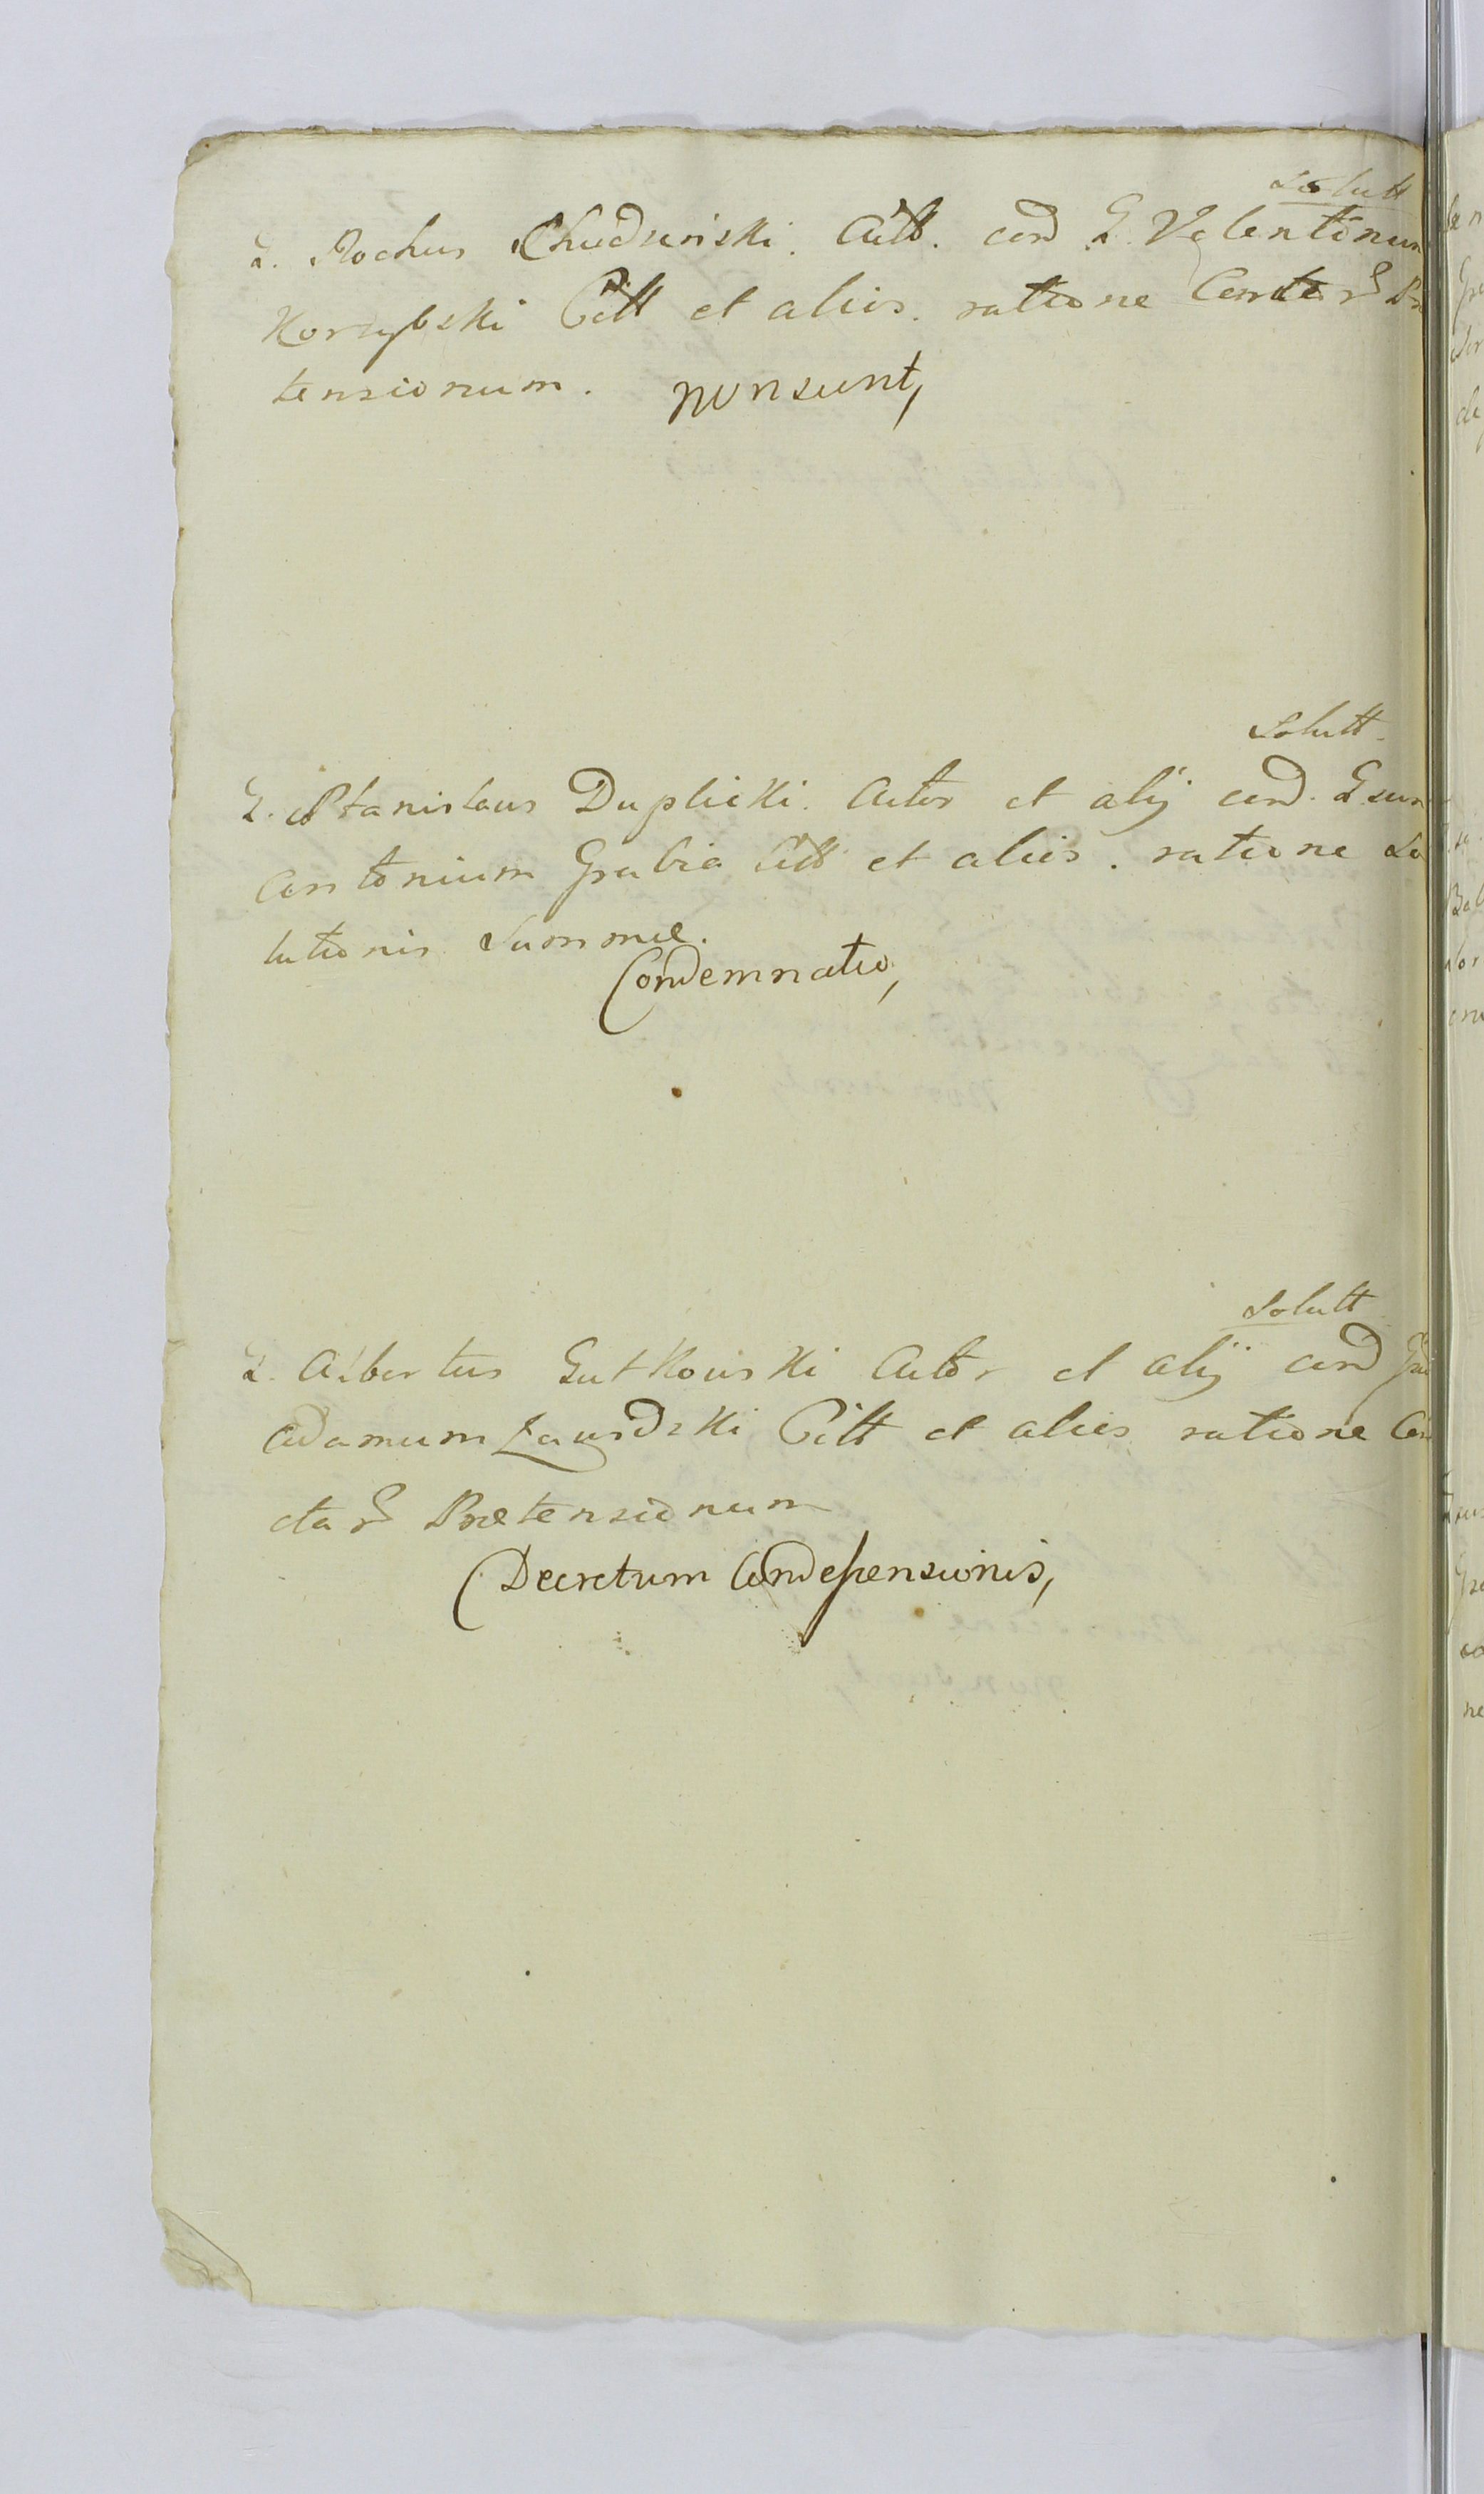 Solutt
G. Rochus Chudzinski. Citt. cord G. Valentinum
Korzybski Citt et aliis. ratione Certor Prę
tensionum. non sunt,
Solutt
G. Stanislaus Duplicki. Actor et alij cord. Gsum
Antonium Grabia Citt et aliis. ratione So
lutionis Summæ.
Condemnatio,
Solutt
G. Albertus Gutkowski Actor et alij cord
Adamum Zawidzki Citt et aliis ratione Cer
tar Prætensionum
Decretum Condescensionis,